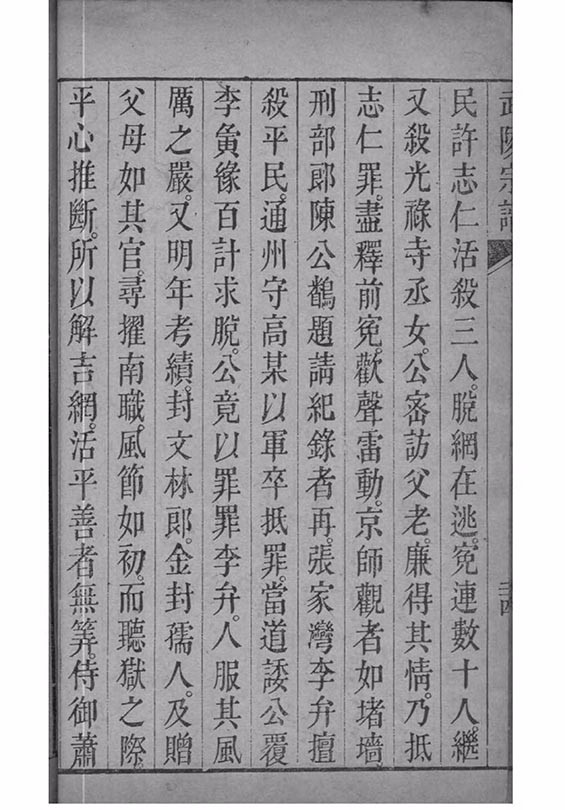 武陵宗譜
民許志仁活殺三人。脫網在逃。寃連數十人繼
又殺光祿寺丞女。公密訪父老。廉得其情。乃抵
志仁罪。盡釋前寃。歡聲雷動。京師觀者如堵墻。
刑部郎陳公鶴題請紀錄者再。張家灣李弁擅
殺平民。通州守高某以軍卒抵罪。當道諉公覆
李夤緣百計求脫。公竟以罪罪李弁。人服其風
厲之嚴。又明年考績。封文林郎。金封孺人。及贈
父母如其官。尋擢南職。風節如初。而聽獄之際。
平心推斷。所以解吉網。活平善者無筭。侍御蕭